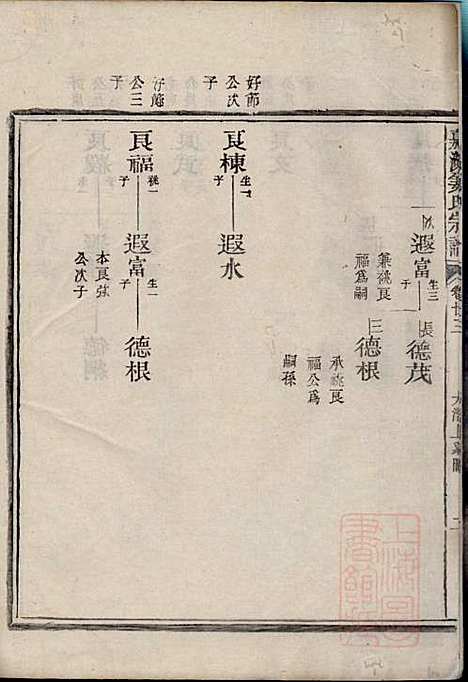 氏宗譜
卷廿三
次 遐富 生三子
兼祧良
福爲嗣
長 德茂
三 德根
承祧良
福公爲
嗣孫
好節
公次
子
良棟 生一子
遐水
公三
子
良福 祧一子
遐富 生一子
本良弦
公次子
德根
上海圖
書館藏